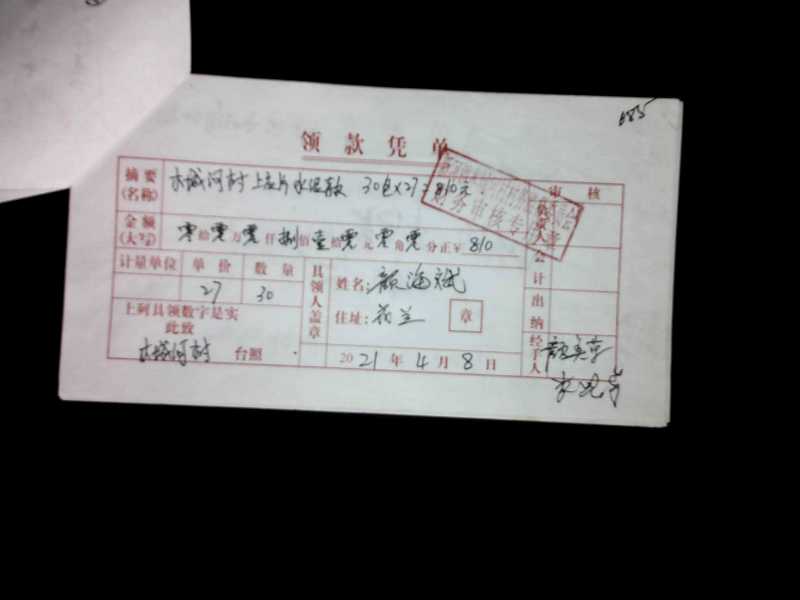 685
领款凭单
摘要(名称) 木城河村上庄片水泥款 30包×27=810元
审核
财务审核专
负责人
金额(大写) 零拾零万零仟捌佰壹拾零元零角零分正¥810
会计
计量单位 单价 数量
27 30
具领人盖章
姓名: 颜海斌
住址: 花兰 章
出纳
上列具领数字是实
此致
木城河村 台照
2021年4月8日
经手人 颜